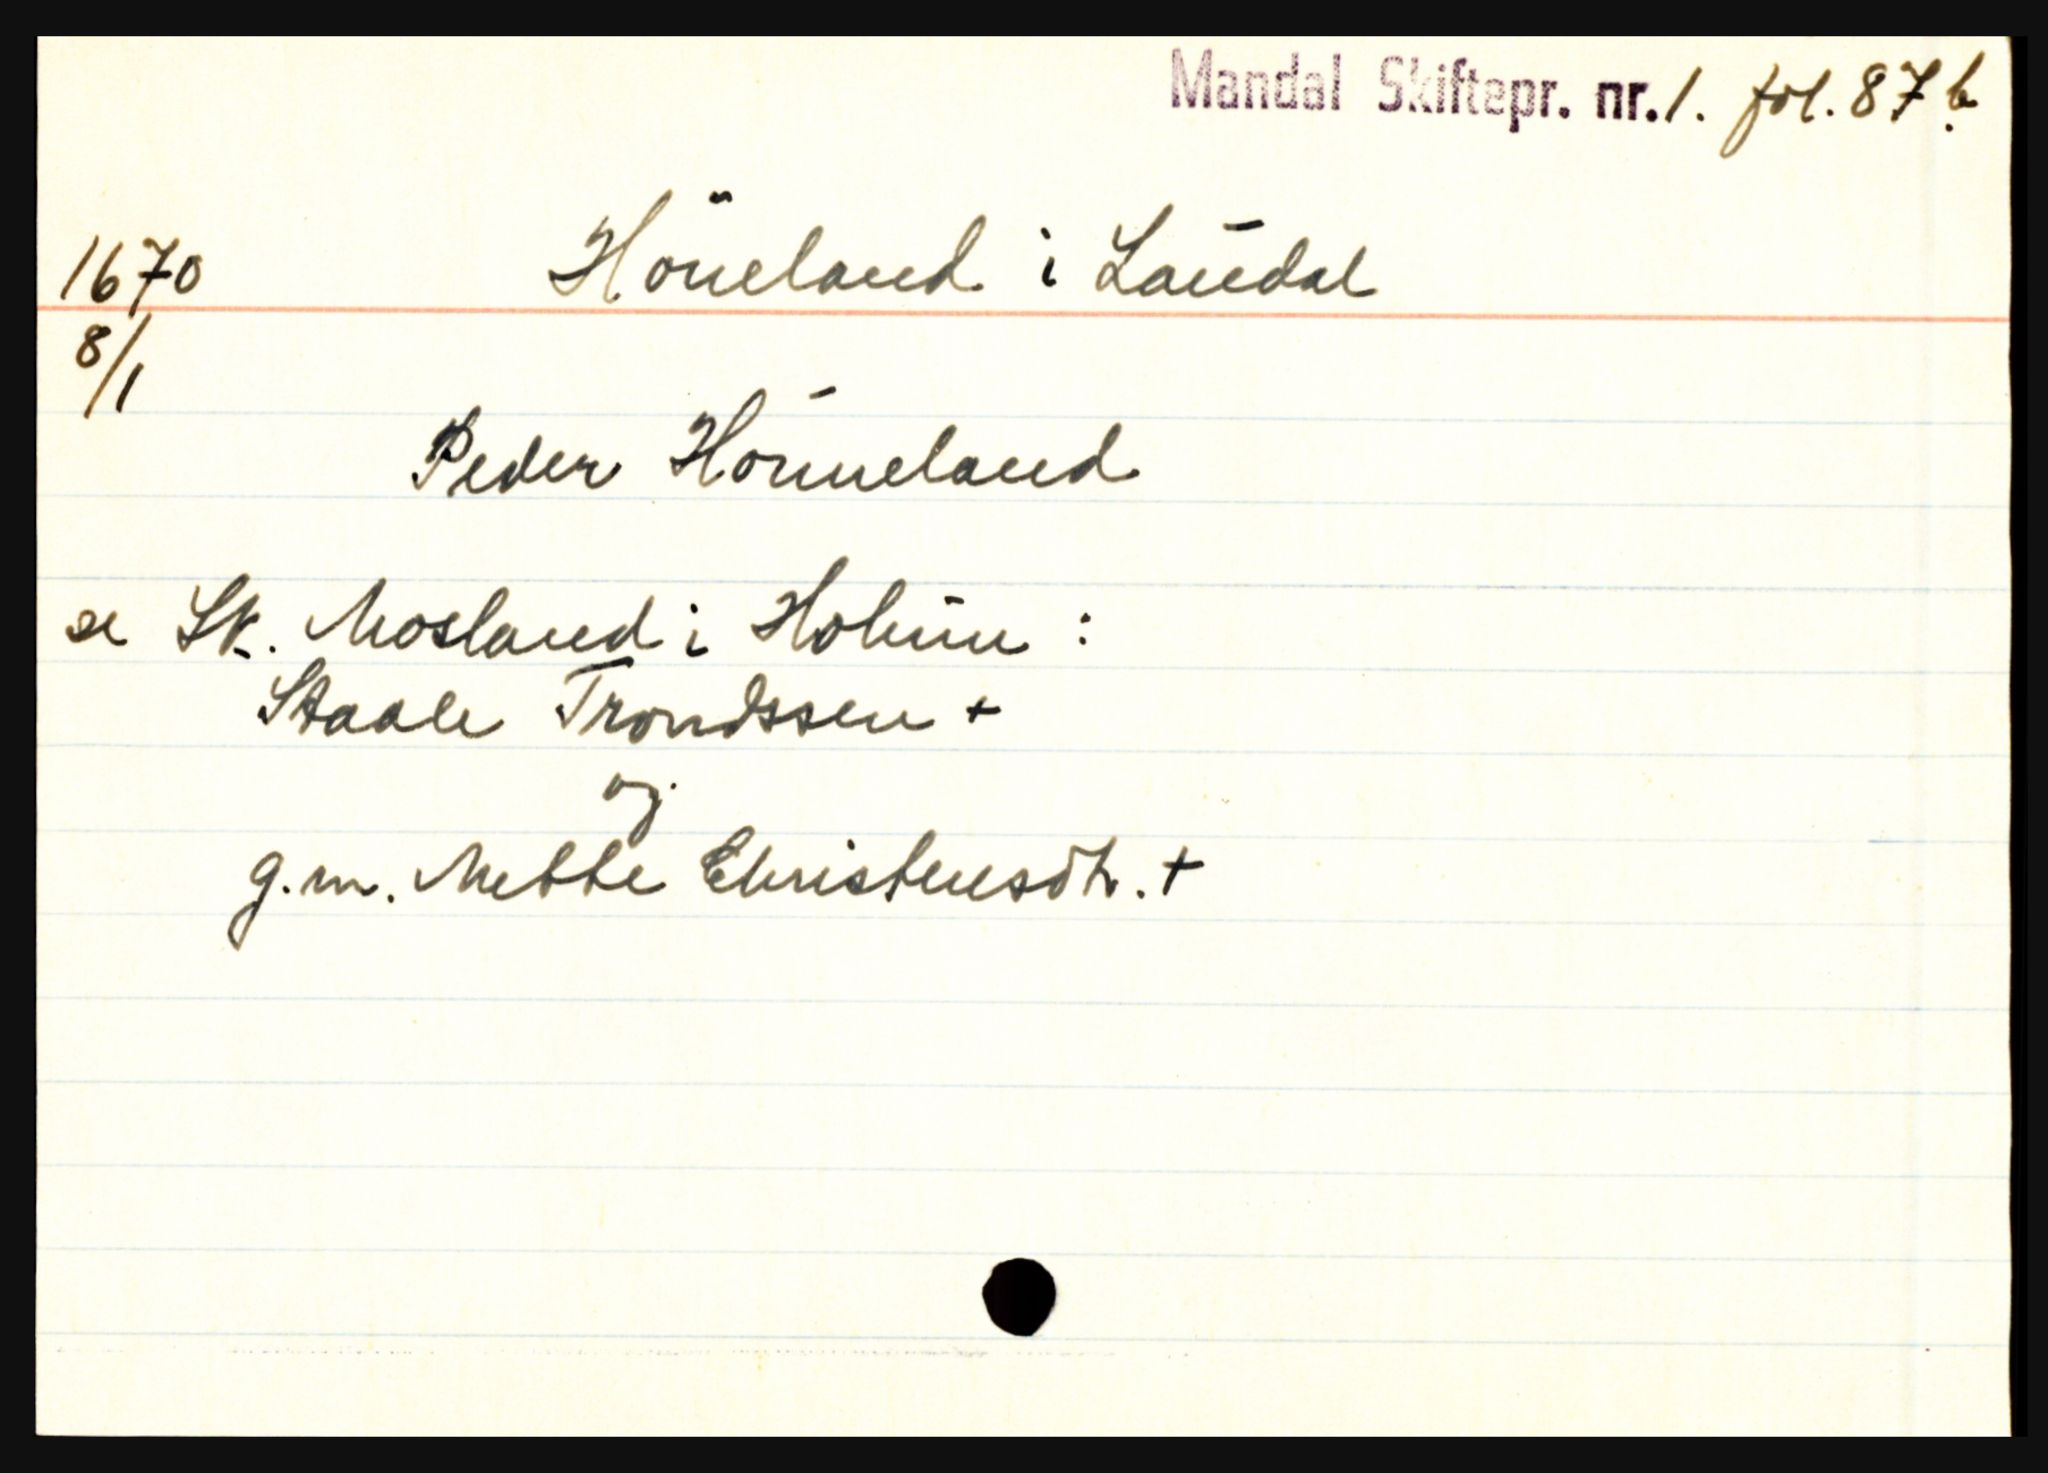 Mandal Skiftepr. nr. 1. fol. 87b.
1670 Höneland i Laudal
8/1
Peder Hønneland
se Sk. Mosland i Holum :
Staale Trondssen +
og
g.m. Mette Christensdtr. +